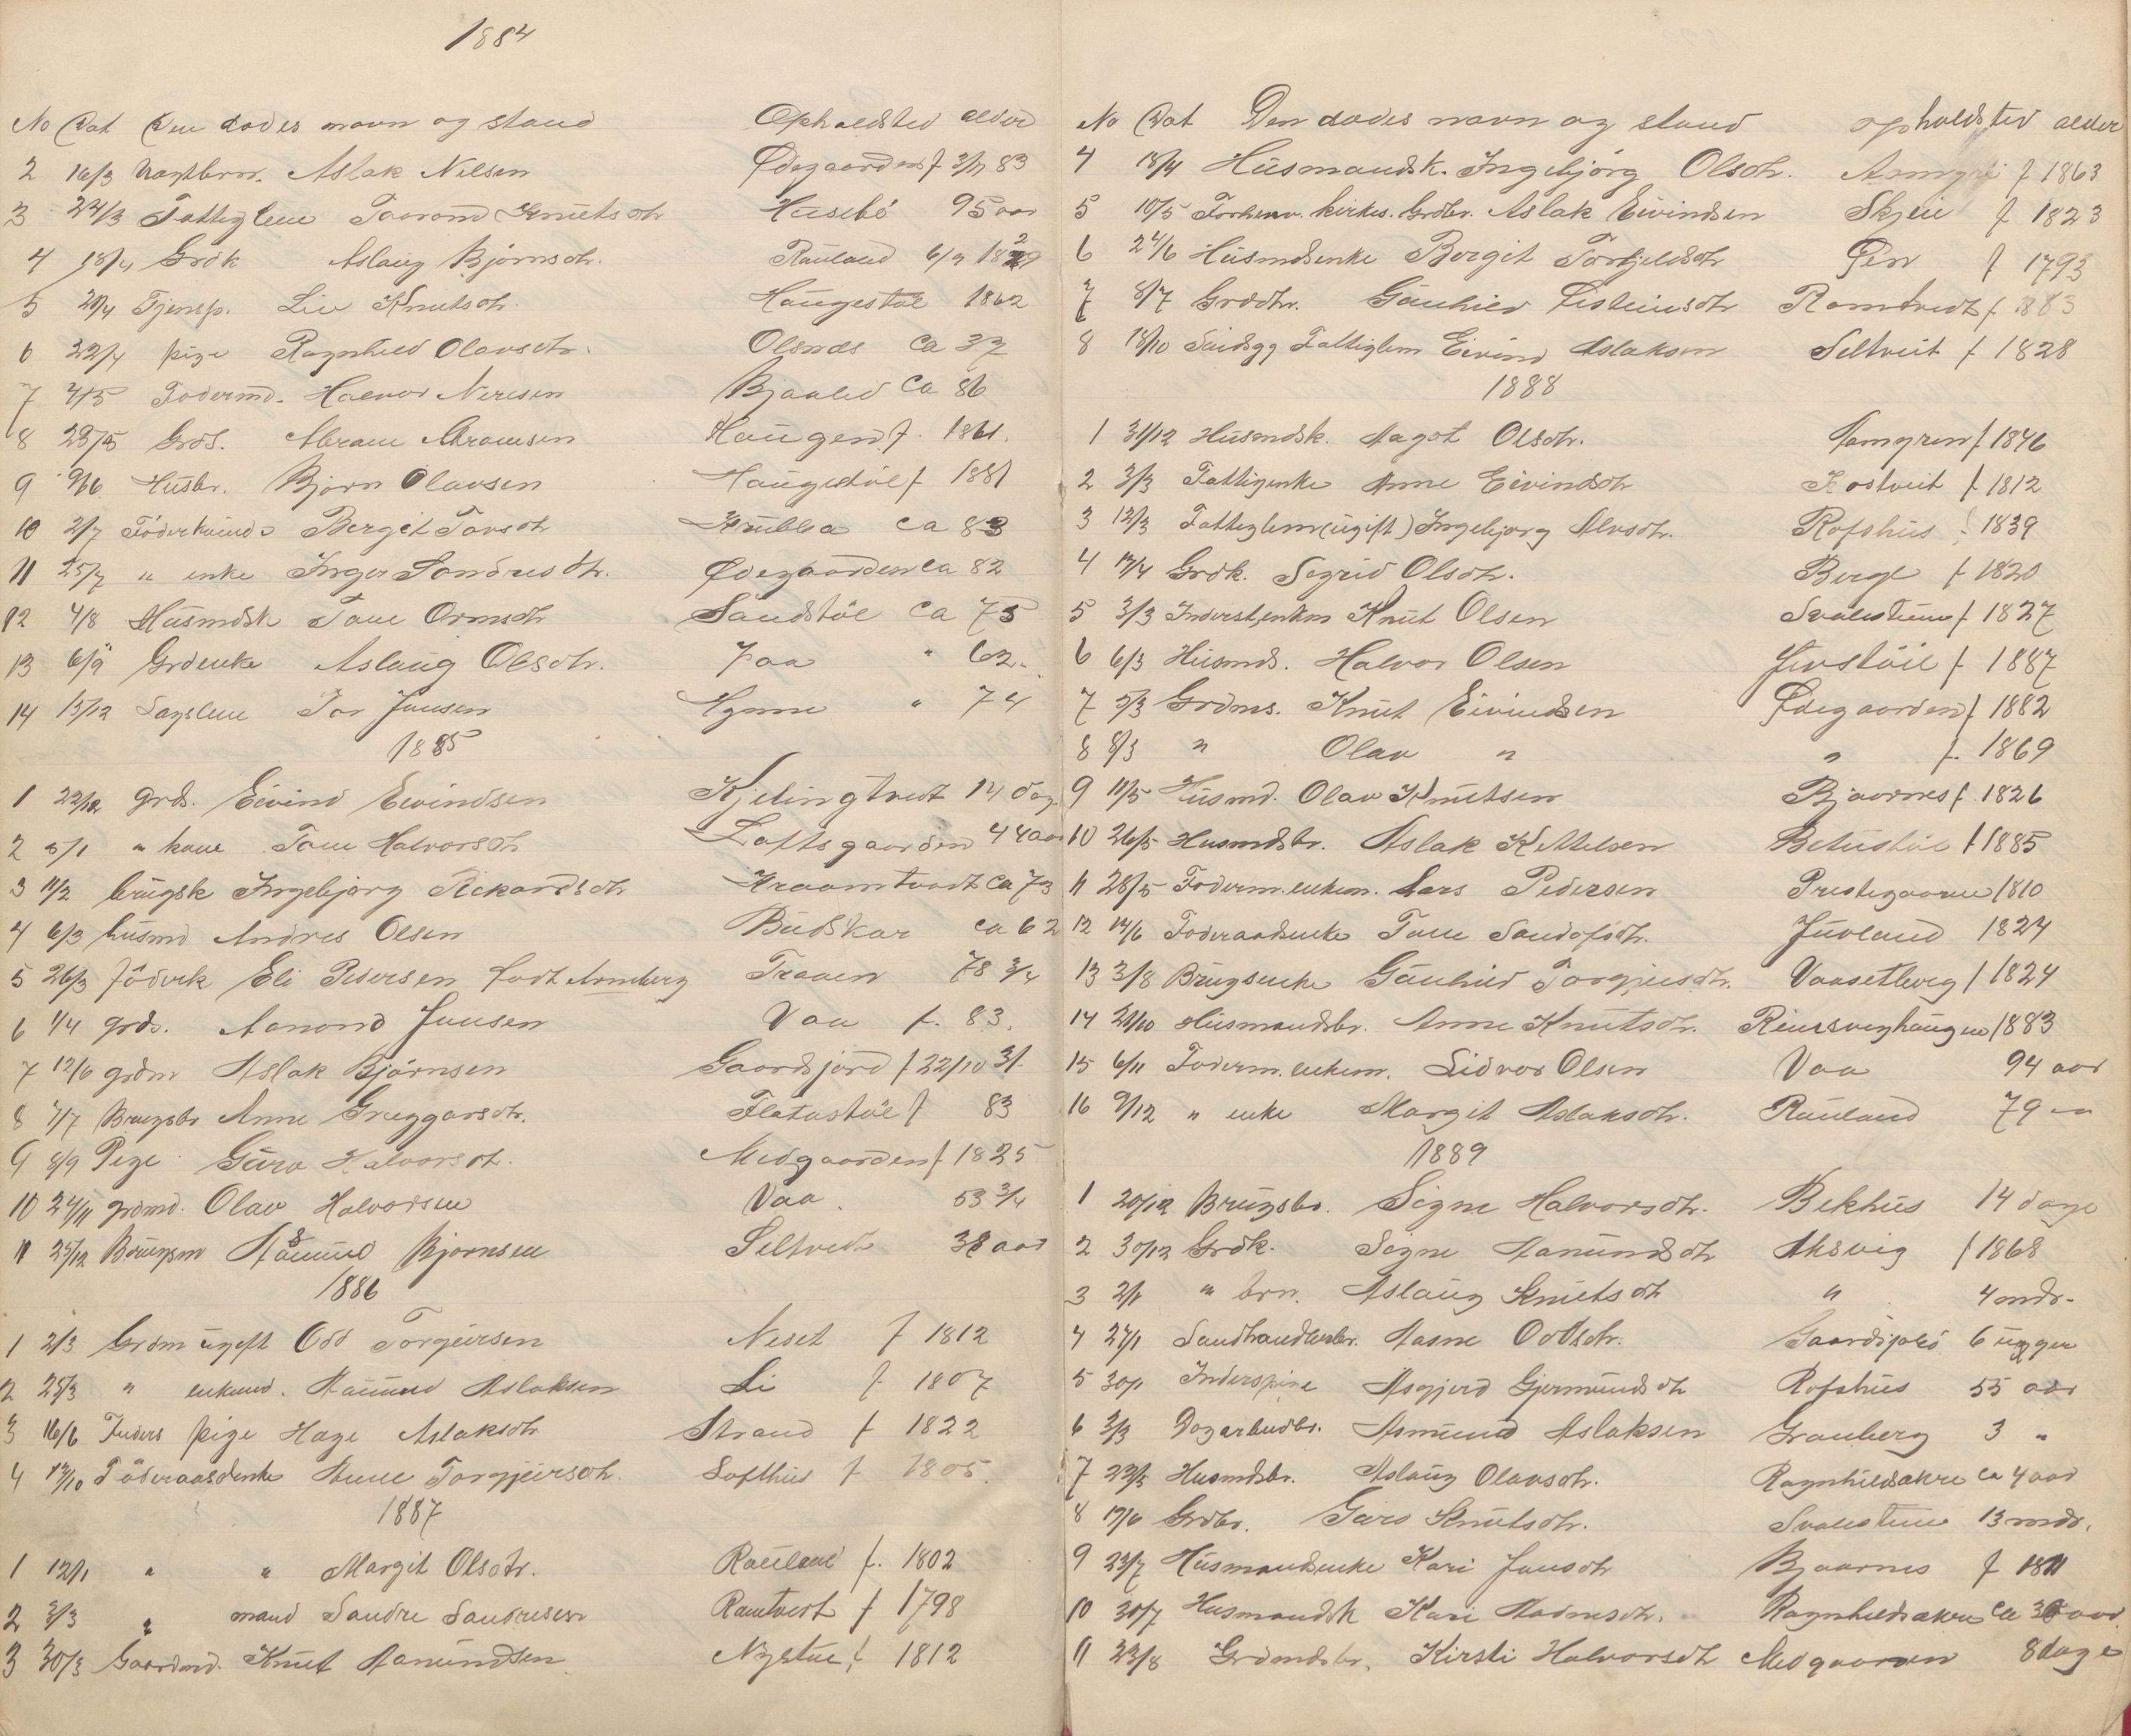 1884
No Dat Den dødes navn og stand Opholdsted alder
2 16/3 Aslak Nilsen Ødegaarden f 3/7 83
3 24/3 Fattiglem Taarand Knutsdtr Husebö 95 aar
4 18/4 Grdk Aslaug Björnsdtr. Rauland 6/9 1829
5 20/4 Tjensp. Liv Knutsdtr. Haugestöl 1862
6 22/4 pige Ragnhild Olavsdtr. Olsnes Ca 37
7 4/5 Foderind. Halvor Nirisen Bjaaled Ca 86
8 28/5 Grds. Abram Abramsen Haugen f. 1861.
9 9/6 Husbr. Bjørn Olavsen Haugestöl f 1881
10 2/7 Föderkvinde Bergit Tovsdtr Krubba Ca 83
11 25/7 " enke Inger Sondresdtr. Ødegaarden Ca 82
12 4/8 Husmdsk Tone Ormsdtr Sandstöl Ca 75
13 6/9 Grdenke Aslaug Olsdtr. Jaa " 62.
14 15/12 Lægslem Tor Jensen " 74
1885
1 22/12 grds. Eivind Eivindsen Kjelingtveit 14 dag
2 5/1 " kone Tone Halvorsdtr Loftsgaarden 44 aar
3 11/2 brugsk Ingebjørg Rickardsdtr Kraamtvedt Ca 73
4 6/3 husmd Andres Olsen Budskar ca 62
5 26/3 födrk Eli Pedersen født Troven 78 3/4
6 1/4 grds. Aanond Jensen Vaa f. 83.
7 12/6 grdm Aslak Bjørnsen Gaardsjord f 22/10 31.
8 7/7 Brugsbr Anne Greggarsdtr. Flatastöl f 83
9 8/9 Pige Guro Halvorsdt. Medgaarden f 1825
10 24/11 grdmd. Olav Halvorsen Vaa. 53 3/4
11 25/12 Brugsm Aamund Bjørnsen Seltvedt 38 aar
1886
1 2/3 Grdm ugift Odd Torgeirsen Neset f 1812
2 25/3 " enkmd. Aamund Aslaksen Li f 1807
3 16/6 Inders pige Hage Aslaksdtr Strand f 1822
4 17/10 Föderaadsenke Anne Torgjeirsdtr. Lofthus f 1805.
1887
1 12/1 " " Margit Olsdtr. Rauland f. 1802
2 3/3 " mand Sandre Sandresen Ramtvedt f 1798
3 30/3 Gaardmd. Knut Aamundsen Nystue f 1812
No Dat Den dødes navn og stand opholdsted alder
4 18/4 Husmandsk. Ingebjörg Olsdtr. f 1863
5 10/5 Forhenv. kirkes. Grdbr. Aslak Eivindsen Skjeie f 1823
6 24/6 Husmdsenke Bergit Torkjeldsdtr Øen f 1793
7 8/7 Grddtr. Gunhild Eisteinsdtr Ramtvedt f 1883
8 18/10 Sindsyg Fattiglem Eivind Aslaksen Seltveit f 1828
1888
1 31/12 Husmdsk. Aagot Olsdtr. Aamgren f 1846
2 3/3 Fattigenke Anne Eivindsdtr Kostveit f 1812
3 12/3 Fattiglem (ugift) Ingebjorg Alvsdtr. Rofshus f 1839
4 17/4 Grdk. Sigrid Olsdtr. Berge f 1820
5 3/3 Inderst, enkm Knut Olsen Svalestuen f 1827
6 6/3 Husmds. Halvor Olsen Jirstöil f 1887
7 5/3 Grdms. Knut Eivindsen Ødegaarden f 1882
8 8/3 " Olav " " f. 1869
9 11/5 Husmd. Olav Knutsen Bjaarnes f. 1826
10 26/5 Husmdsbr. Aslak Kittelsen Betustöl f 1885
11 28/5 Foderm. enkem. Lars Pedersen Prestegaarden 1810
12 14/6 Foderaadsenke Tone Sandofsdtr. Juvland 1824
13 3/8 Brugsenke Gunhild Torgjusdtr. Vaasetberg f 1824
14 24/10 Husmandsbr. Anne Knutsdtr. Reinsveghaugen 1883
15 6/11 Foderm. enkem. Lidvor Olsen Vaa 94 aar
16 9/12 " enke Margit Aslaksdtr. Rauland 79 "
1889
1 20/12 Brugsbr. Signe Halvorsdtr. Bekhus 14 dage
2 30/12 Grdk. Signe Aamundsdtr Aksvig f 1868
3 2/1 " brn. Aslaug Knutsdtr " 4 mdr.
4 27/1 Landhandlersbr. Aasne Oddsdtr. Gaardsjord 6 uger
5 30/1 Inderspige Asgjerd Gjermundsdtr Rofshus 55 aar
6 3/3 Dagarbeidbr. Asmund Aslaksen Granberg 3 "
7 23/5 Husmdsbr. Aslaug Olavsdtr. Ragnhildsakre ca 4 aar
8 17/6 Grdbr. Guro Knutsdtr. Svalestuen 13 mdr.
9 23/7 Husmandsenke Kari Jensdtr Bjaarnes f 1811
10 30/7 Husmandsk Kari Ragnhildsakre Ca 36 aar.
11 23/8 Grdmdsbr. Kirsti Halvorsdtr Medgaarden 8 dage